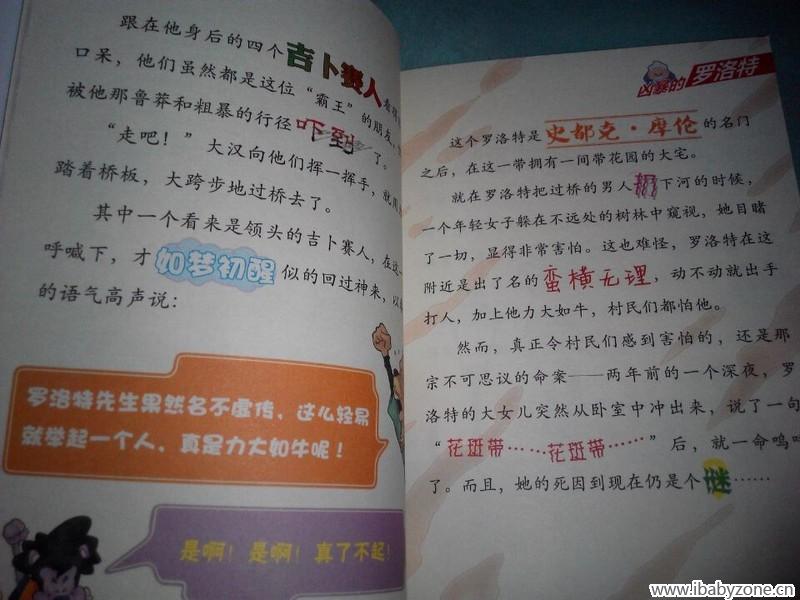 跟在他身后的四个吉卜赛人看得
口呆，他们虽然都是这位“霸王”的朋友，
被他那鲁莽和粗暴的行径吓到了。
“走吧！”大汉向他们挥一挥手，就
踏着桥板，大跨步地过桥去了。
其中一个看来是领头的吉卜赛人，在这一
呼喊下，才如梦初醒似的回过神来，以
的语气高声说：
罗洛特先生果然名不虚传，这么轻易
就举起一个人，真是力大如牛呢！
是啊！是啊！真了不起！
凶暴的罗洛特
这个罗洛特是史都克·摩伦的名门
之后，在这一带拥有一间带花园的大宅。
就在罗洛特把过桥的男人扔下河的时候，
一个年轻女子躲在不远处的树林中窥视，她目睹
了一切，显得非常害怕。这也难怪，罗洛特在这
附近是出了名的蛮横无理，动不动就出手
打人，加上他力大如牛，村民们都怕他。
然而，真正令村民们感到害怕的，还是那
宗不可思议的命案——两年前的一个深夜，罗
洛特的大女儿突然从卧室中冲出来，说了一句
“花斑带……花斑带……”后，就一命呜呼
了。而且，她的死因到现在仍是个谜……
www.ibabyzone.cn